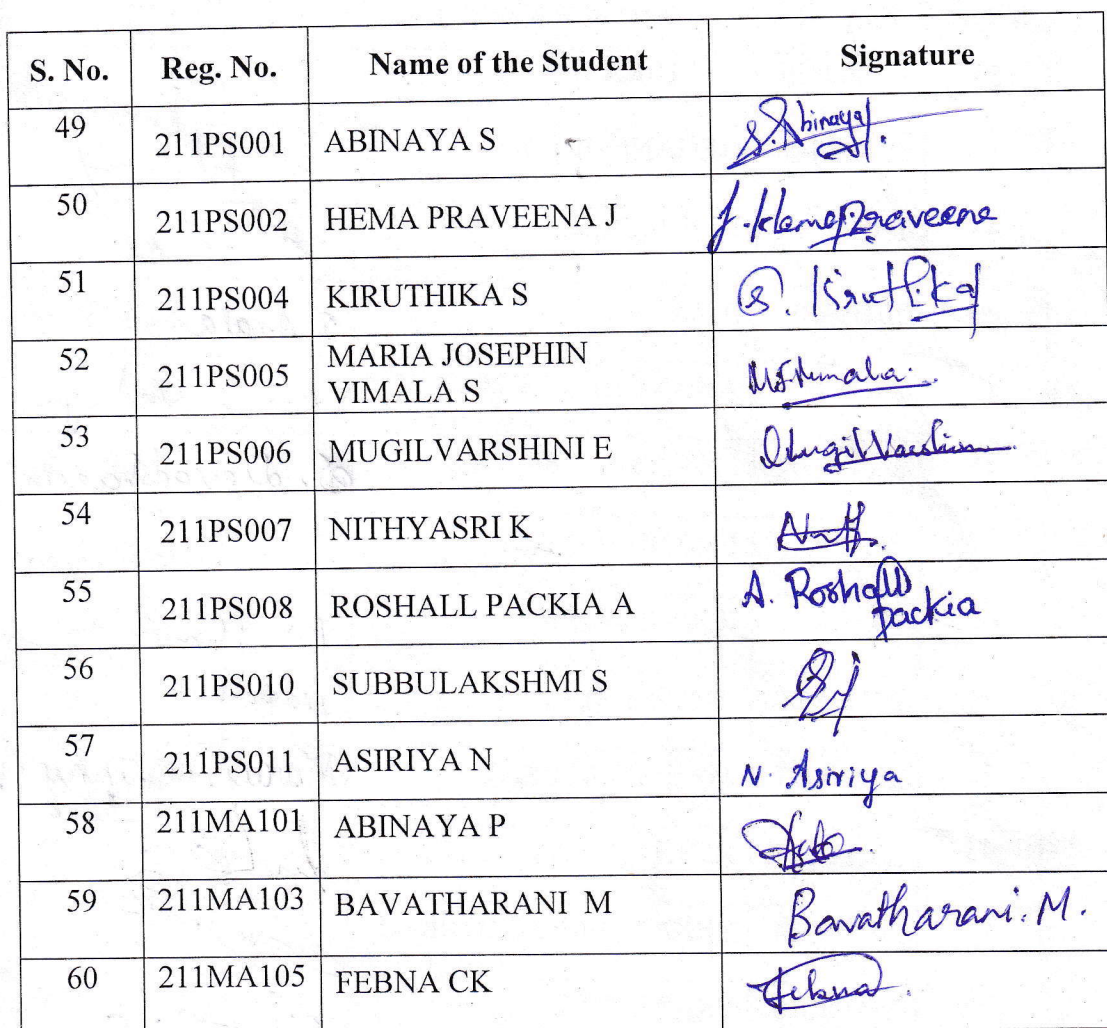 S. No. Reg. No. Name of the Student Signature
49 211PS001 ABINAYA S S. Abinaya
50 211PS002 HEMA PRAVEENA J J. Hema Praveena
51 211PS004 KIRUTHIKA S S. Kiruthika
52 211PS005 MARIA JOSEPHIN
VIMALA S
53 211PS006 MUGILVARSHINI E
54 211PS007 NITHYASRI K
55 211PS008 ROSHALL PACKIA A A. Roshall
packia
56 211PS010 SUBBULAKSHMI S
57 211PS011 ASIRIYA N N. Asiriya
58 211MA101 ABINAYA P
59 211MA103 BAVATHARANI M Bavatharani. M.
60 211MA105 FEBNA CK Febna